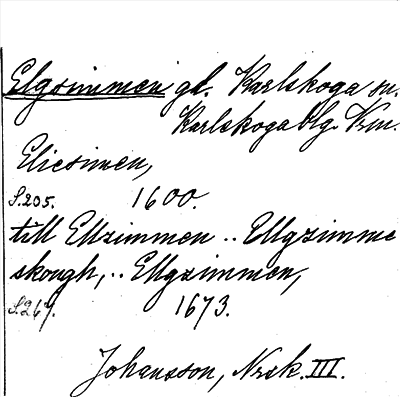 Elgsimmen gd. Karlskoga sn.
Karlskoga blg. Vrm.
Elicsimen,
S.205. 1600.
till Ellzimmen .. Ellgzimme
skough, .. Ellgzimmen,
S.267. 1673.
Johansson, Nrsk. III.